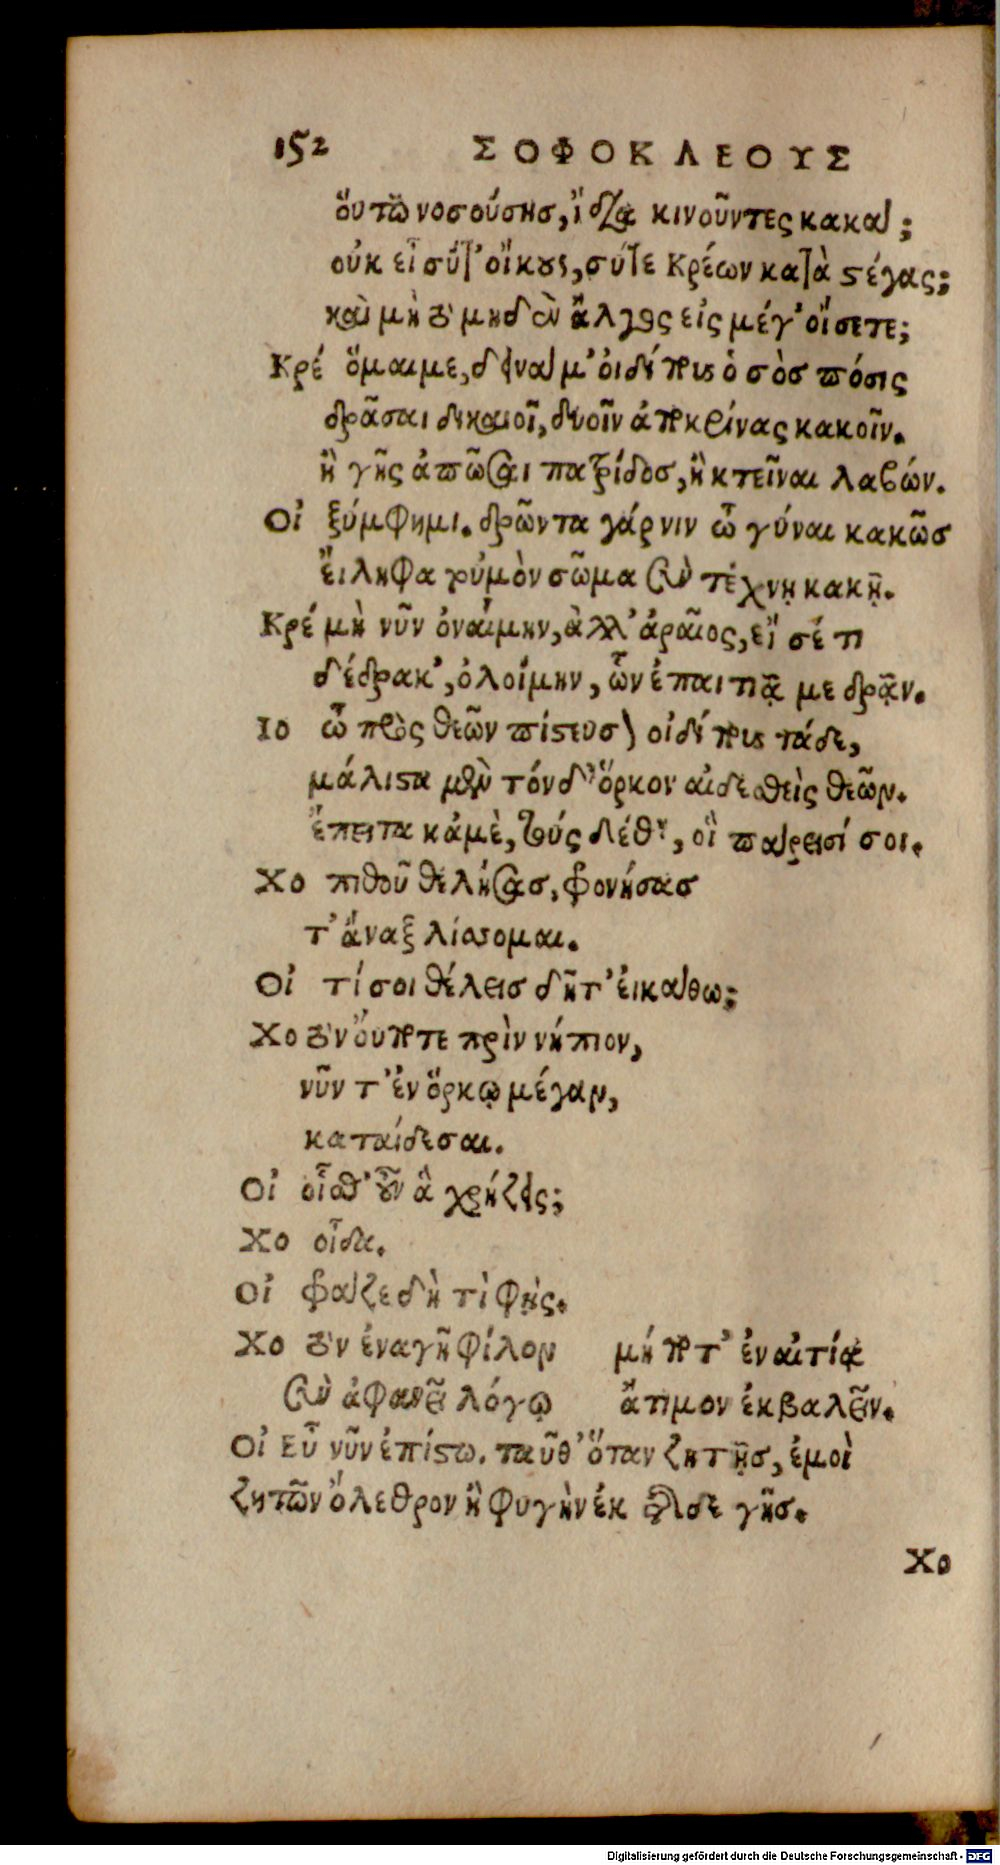 152 ΣΟΦΟΚΛΕΟΥΣ
ὅυτω νοσούσησ, ἴδια κινοῦντες κακά;
οὐκ εἶ σύτ' οἴκους, σύτε Κρέων κατὰ στέγας;
καὶ μὴ ου μηδὲν ἄλγος εἰς μέγ' οἴσετε;
Κρέ ὅμαιμε, δεινά μ' οἰδίπους ὁ σὸσ πόσις
δρᾶσαι δικαιοῖ, δυοῖν ἀποκρίνας κακοῖν.
ἢ γῆς ἀπῶσαι πατρίδοσ, ἢ κτεῖναι λαβών.
Οἰ ξύμφημι. δρῶντα γάρ νιν ὦ γύναι κακῶσ
ἔιληφα τοὐμὸν σῶμα σὺν τέχνῃ κακῇ.
Κρέ μὴ νῦν ὀναίμην, ἀλλ' ἀραῖος, εἴ σέ τι
δέδρακ', ὀλοίμην, ὧν ἐπαιτιᾷ με δρᾷν.
Ιο ὦ πρὸς θεῶν πίστευσον οἰδίπους τάδε,
μάλιστα μὲν τόνδ' ὅρκον αἰδεσθεὶς θεῶν.
ἔπειτα κἀμὲ, τούς δέθ', οἳ πάρεισί σοι.
Χο πιθοῦ θελήσασ, φρονήσασ
τ' ἄναξ λίσσομαι.
Οἰ τί σοι θέλεισ δῆτ' ἐικάθω;
Χο τὸν ὄυποτε πρὶν νήπιον,
νῦν τ' ἐν ὅρκῳ μέγαν,
καταίδεσαι.
Οἰ οἶσθ' οὖν ἃ χρῄζεις;
Χο οἶδα.
Οἰ φράζε δὴ τὶ φῄς.
Χο τὸν ἐναγῆ φίλον μήποτ' ἐν αἰτίᾳ
σὺν ἀφανεῖ λόγῳ ἄτιμον ἐκβαλεῖν.
Οἰ Εὖ νῦν ἐπίστω. ταῦθ' ὅταν ζητῇσ, ἐμοὶ
ζητῶν ὄλεθρον ἢ φυγὴν ἐκ τῆσδε γῆσ.
Χο
Digitalisierung gefördert durch die Deutsche Forschungsgemeinschaft - DFG